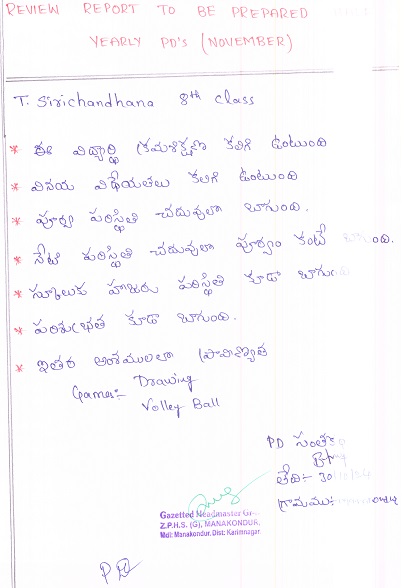 REVIEW REPORT TO BE PREPARED
YEARLY PD's (NOVEMBER)
T. Sirichandhana 8th class
* ఈ విద్యార్థి క్రమశిక్షణ కలిగి ఉంటుంది
* వినయ విధేయతలు కలిగి ఉంటుంది
* పూర్వ పరిస్థితి చదువులో బాగుంది.
* నేటి పరిస్థితి చదువులో పూర్వం కంటే బాగుంది.
* స్కూలుకు హాజరు పరిస్థితి కూడా బాగుంది
* పరిశుభ్రత కూడా బాగుంది.
* ఇతర అంశములలో ప్రావీణ్యత
Games:- Drawing
Volley Ball
PD
తేది:- 30
గ్రామము:
Gazetted Headmaster
Z.P.H.S. (G), MANAKONDUR,
Mdl: Manakondur, Dist: Karimnagar.
PD